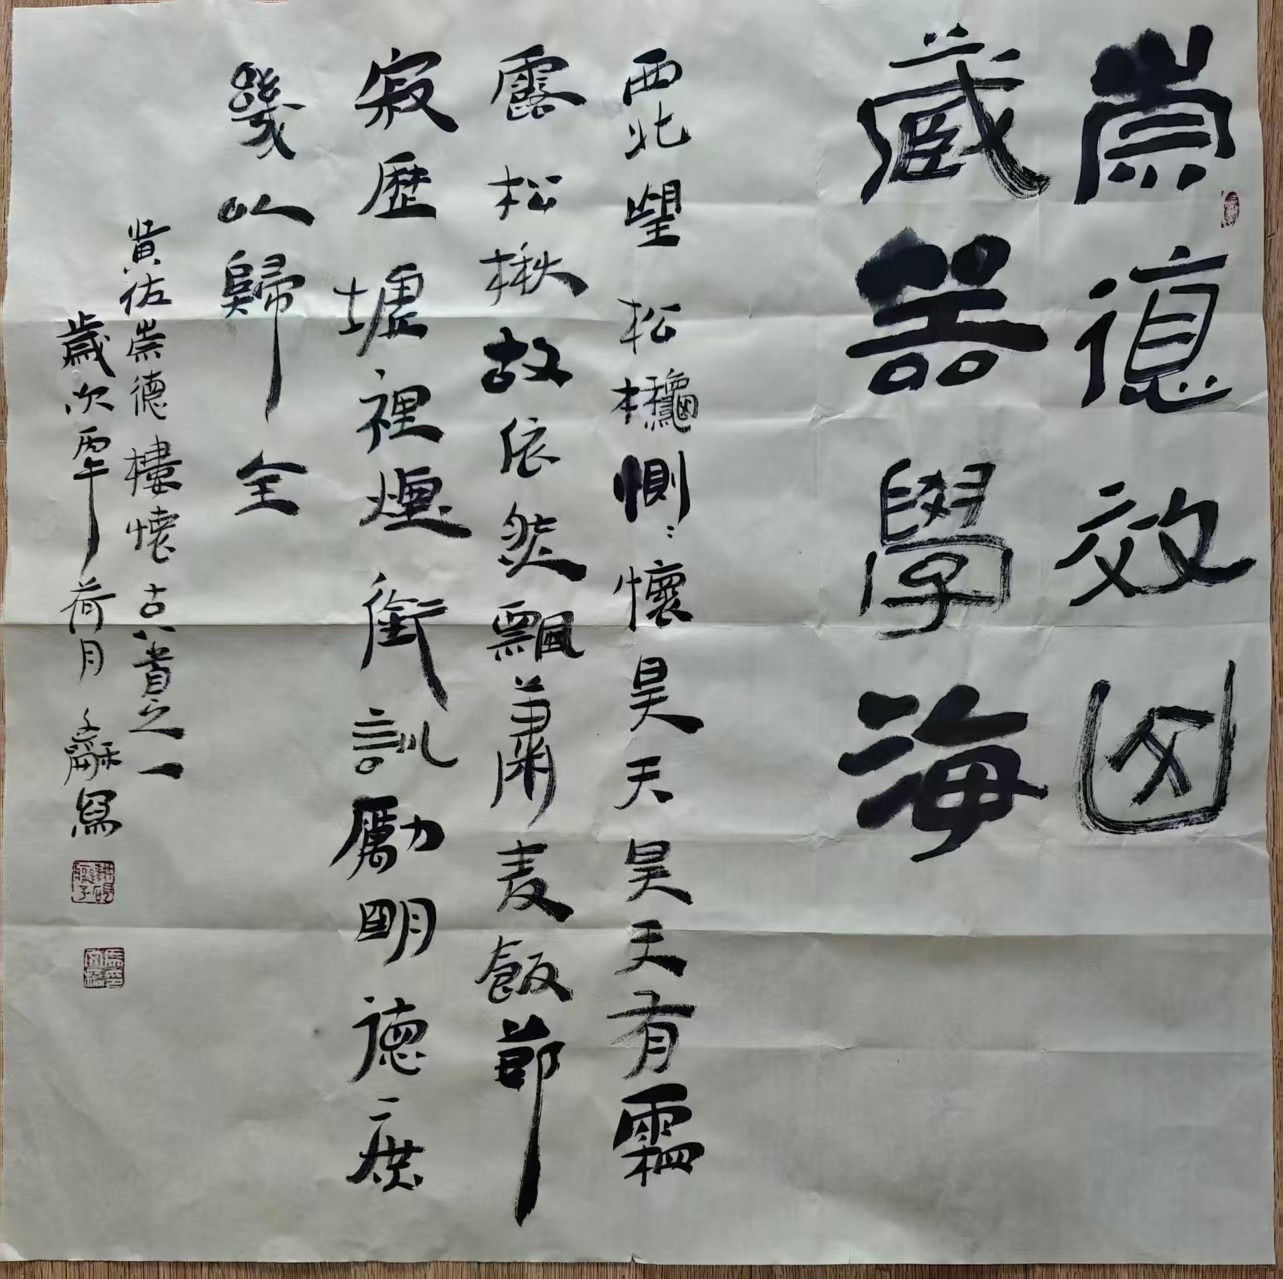 崇德效山
藏器學海
西北望松櫬惻〻懷昊天昊天有霜
露松楸故依然飄蕭麦飯節
寂歷墟裡煙銜訓勵明德庶
幾以歸全
黄佐崇德樓懷古八首之一
歲次丙午荷月